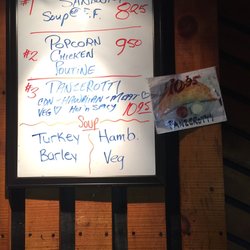 #1
Soup @ F.F. 8.25
#2 POPCORN 9.50
CHICKEN
POUTINE
#3 PANZEROTTI
VEG 10.95
Soup
Turkey Hamb.
Barley Veg
10.95
PANZEROTTI